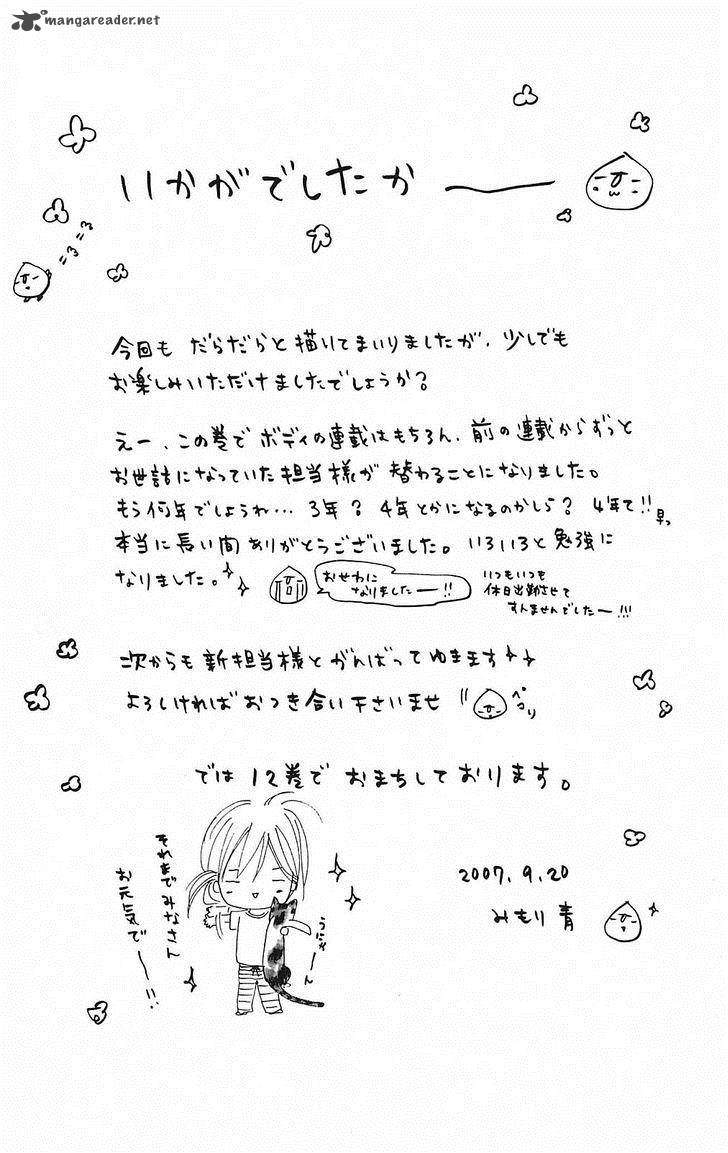 mangareader.net
いかがでしたか ー
=3 =3
今回も だらだらと描いてまいりましたが、少しでも
お楽しみいただけましたでしょうか？
えー、この巻で ボディの連載はもちろん、前の連載からずっと
お世話になっていた担当様が 替わることになりました。
もう何年でしょうね… 3年？ 4年とかになるのかしら？ 4年て!! 早っ
本当に長い間ありがとうございました。いろいろと勉強に
なりました。
おせわに
なりましたー!!
いつもいつも
休日出勤させて
すんませんでしたー!!!
次からも新担当様とがんばってゆきます
よろしければおつき合い下さいませ
ペコリ
では 12巻で おまちしております。
それまでみなさん
お元気でー!!
うにゃーん
2007. 9. 20
みもり 青